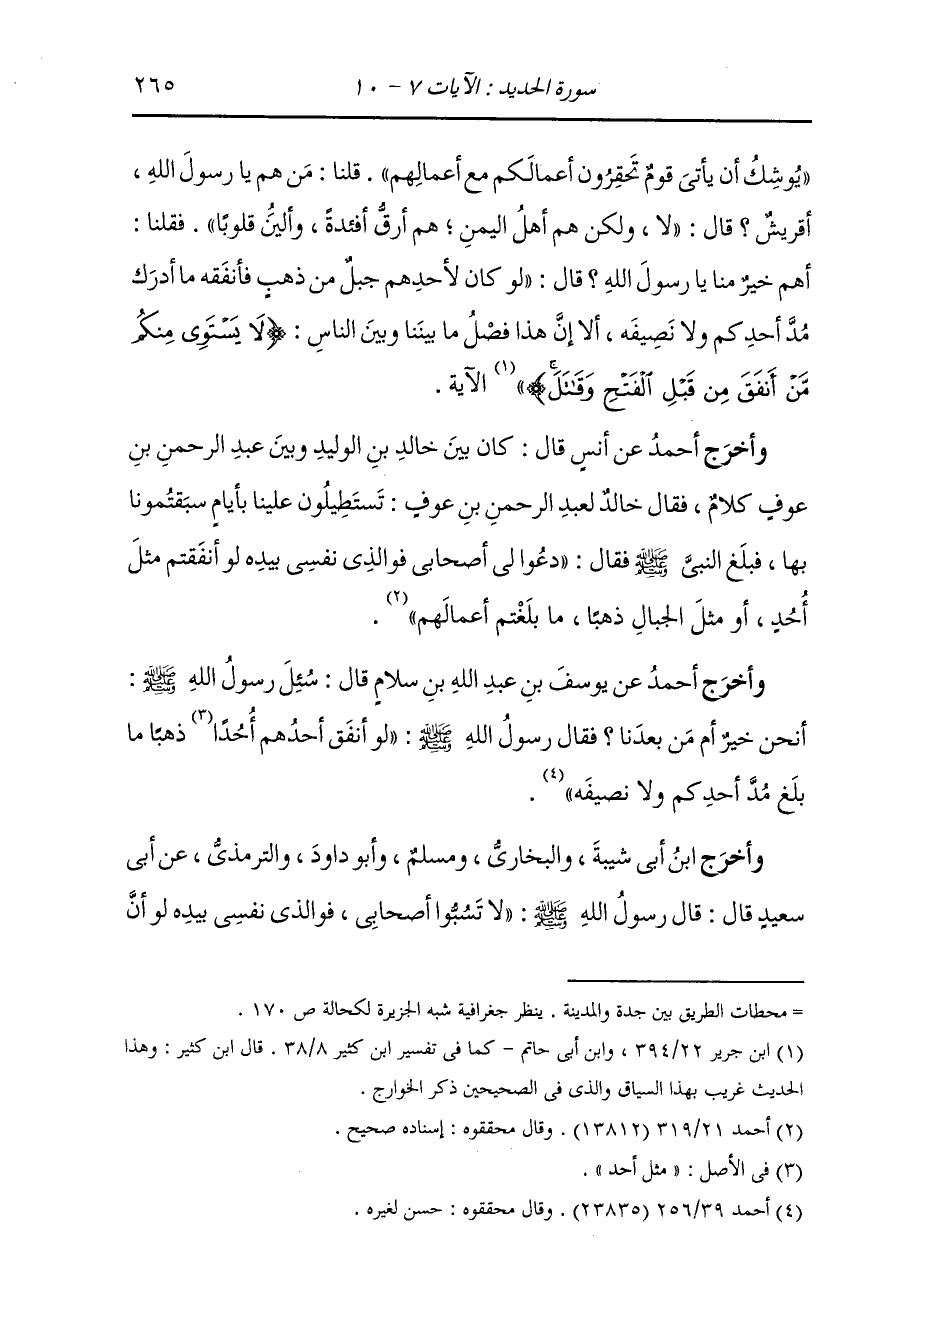 سورة الحديد : الآيات ٧ - ١٠ ٢٦٥
«يُوشِكُ أن يأتىَ قومٌ تَحقِرُون أعمالَكم مع أعمالِهم» . قلنا : مَن هم يا رسولَ اللهِ ،
أقريشٌ ؟ قال : «لا ، ولكن هم أهلُ اليمنِ ؛ هم أرقُّ أفئدةً ، وألينُ قلوبًا» . فقلنا :
أهم خيرٌ منا يا رسولَ اللهِ ؟ قال : «لو كان لأحدِهم جبلٌ من ذهبٍ فأنفَقه ما أدرَك
مُدَّ أحدِكم ولا نَصِيفَه ، ألا إنَّ هذا فصْلُ ما بينَنا وبينَ الناسِ : ﴿لَا يَسْتَوِى مِنكُم
مَّنْ أَنفَقَ مِن قَبْلِ ٱلْفَتْحِ وَقَٰتَلَۚ﴾»(١) الآية .
وأخرَج أحمدُ عن أنسٍ قال : كان بينَ خالدِ بنِ الوليدِ وبينَ عبدِ الرحمنِ بنِ
عوفٍ كلامٌ ، فقال خالدٌ لعبدِ الرحمنِ بنِ عوفٍ : تَستَطِيلُون علينا بأيامٍ سبَقتُمونا
بها ، فبلَغ النبىَّ ﷺ فقال : «دعُوا لى أصحابى فوالذِى نفسِى بيدِه لو أنفَقتم مثلَ
أُحُدٍ ، أو مثلَ الجبالِ ذهبًا ، ما بلَغْتم أعمالَهم»(٢) .
وأخرَج أحمدُ عن يوسفَ بنِ عبدِ اللهِ بنِ سلامٍ قال : سُئِلَ رسولُ اللهِ ﷺ :
أنحن خيرٌ أم مَن بعدَنا ؟ فقال رسولُ اللهِ ﷺ : «لو أنفَق أحدُهم أُحُدًا(٣) ذهبًا ما
بلَغ مُدَّ أحدِكم ولا نصيفَه»(٤) .
وأخرَج ابنُ أبى شيبةَ ، والبخارىُّ ، ومسلمٌ ، وأبو داودَ ، والترمذىُّ ، عن أبى
سعيدٍ قال : قال رسولُ اللهِ ﷺ : «لا تَسُبُّوا أصحابِى ، فوالذى نفسِى بيدِه لو أنَّ
= محطات الطريق بين جدة والمدينة . ينظر جغرافية شبه الجزيرة لكحالة ص ١٧٠ .
(١) ابن جرير ٣٩٤/٢٢ ، وابن أبى حاتم - كما فى تفسير ابن كثير ٣٨/٨ . قال ابن كثير : وهذا
الحديث غريب بهذا السياق والذى فى الصحيحين ذكر الخوارج .
(٢) أحمد ٣١٩/٢١ (١٣٨١٢) . وقال محققوه : إسناده صحيح .
(٣) فى الأصل : « مثل أحد » .
(٤) أحمد ٢٥٦/٣٩ (٢٣٨٣٥) . وقال محققوه : حسن لغيره .